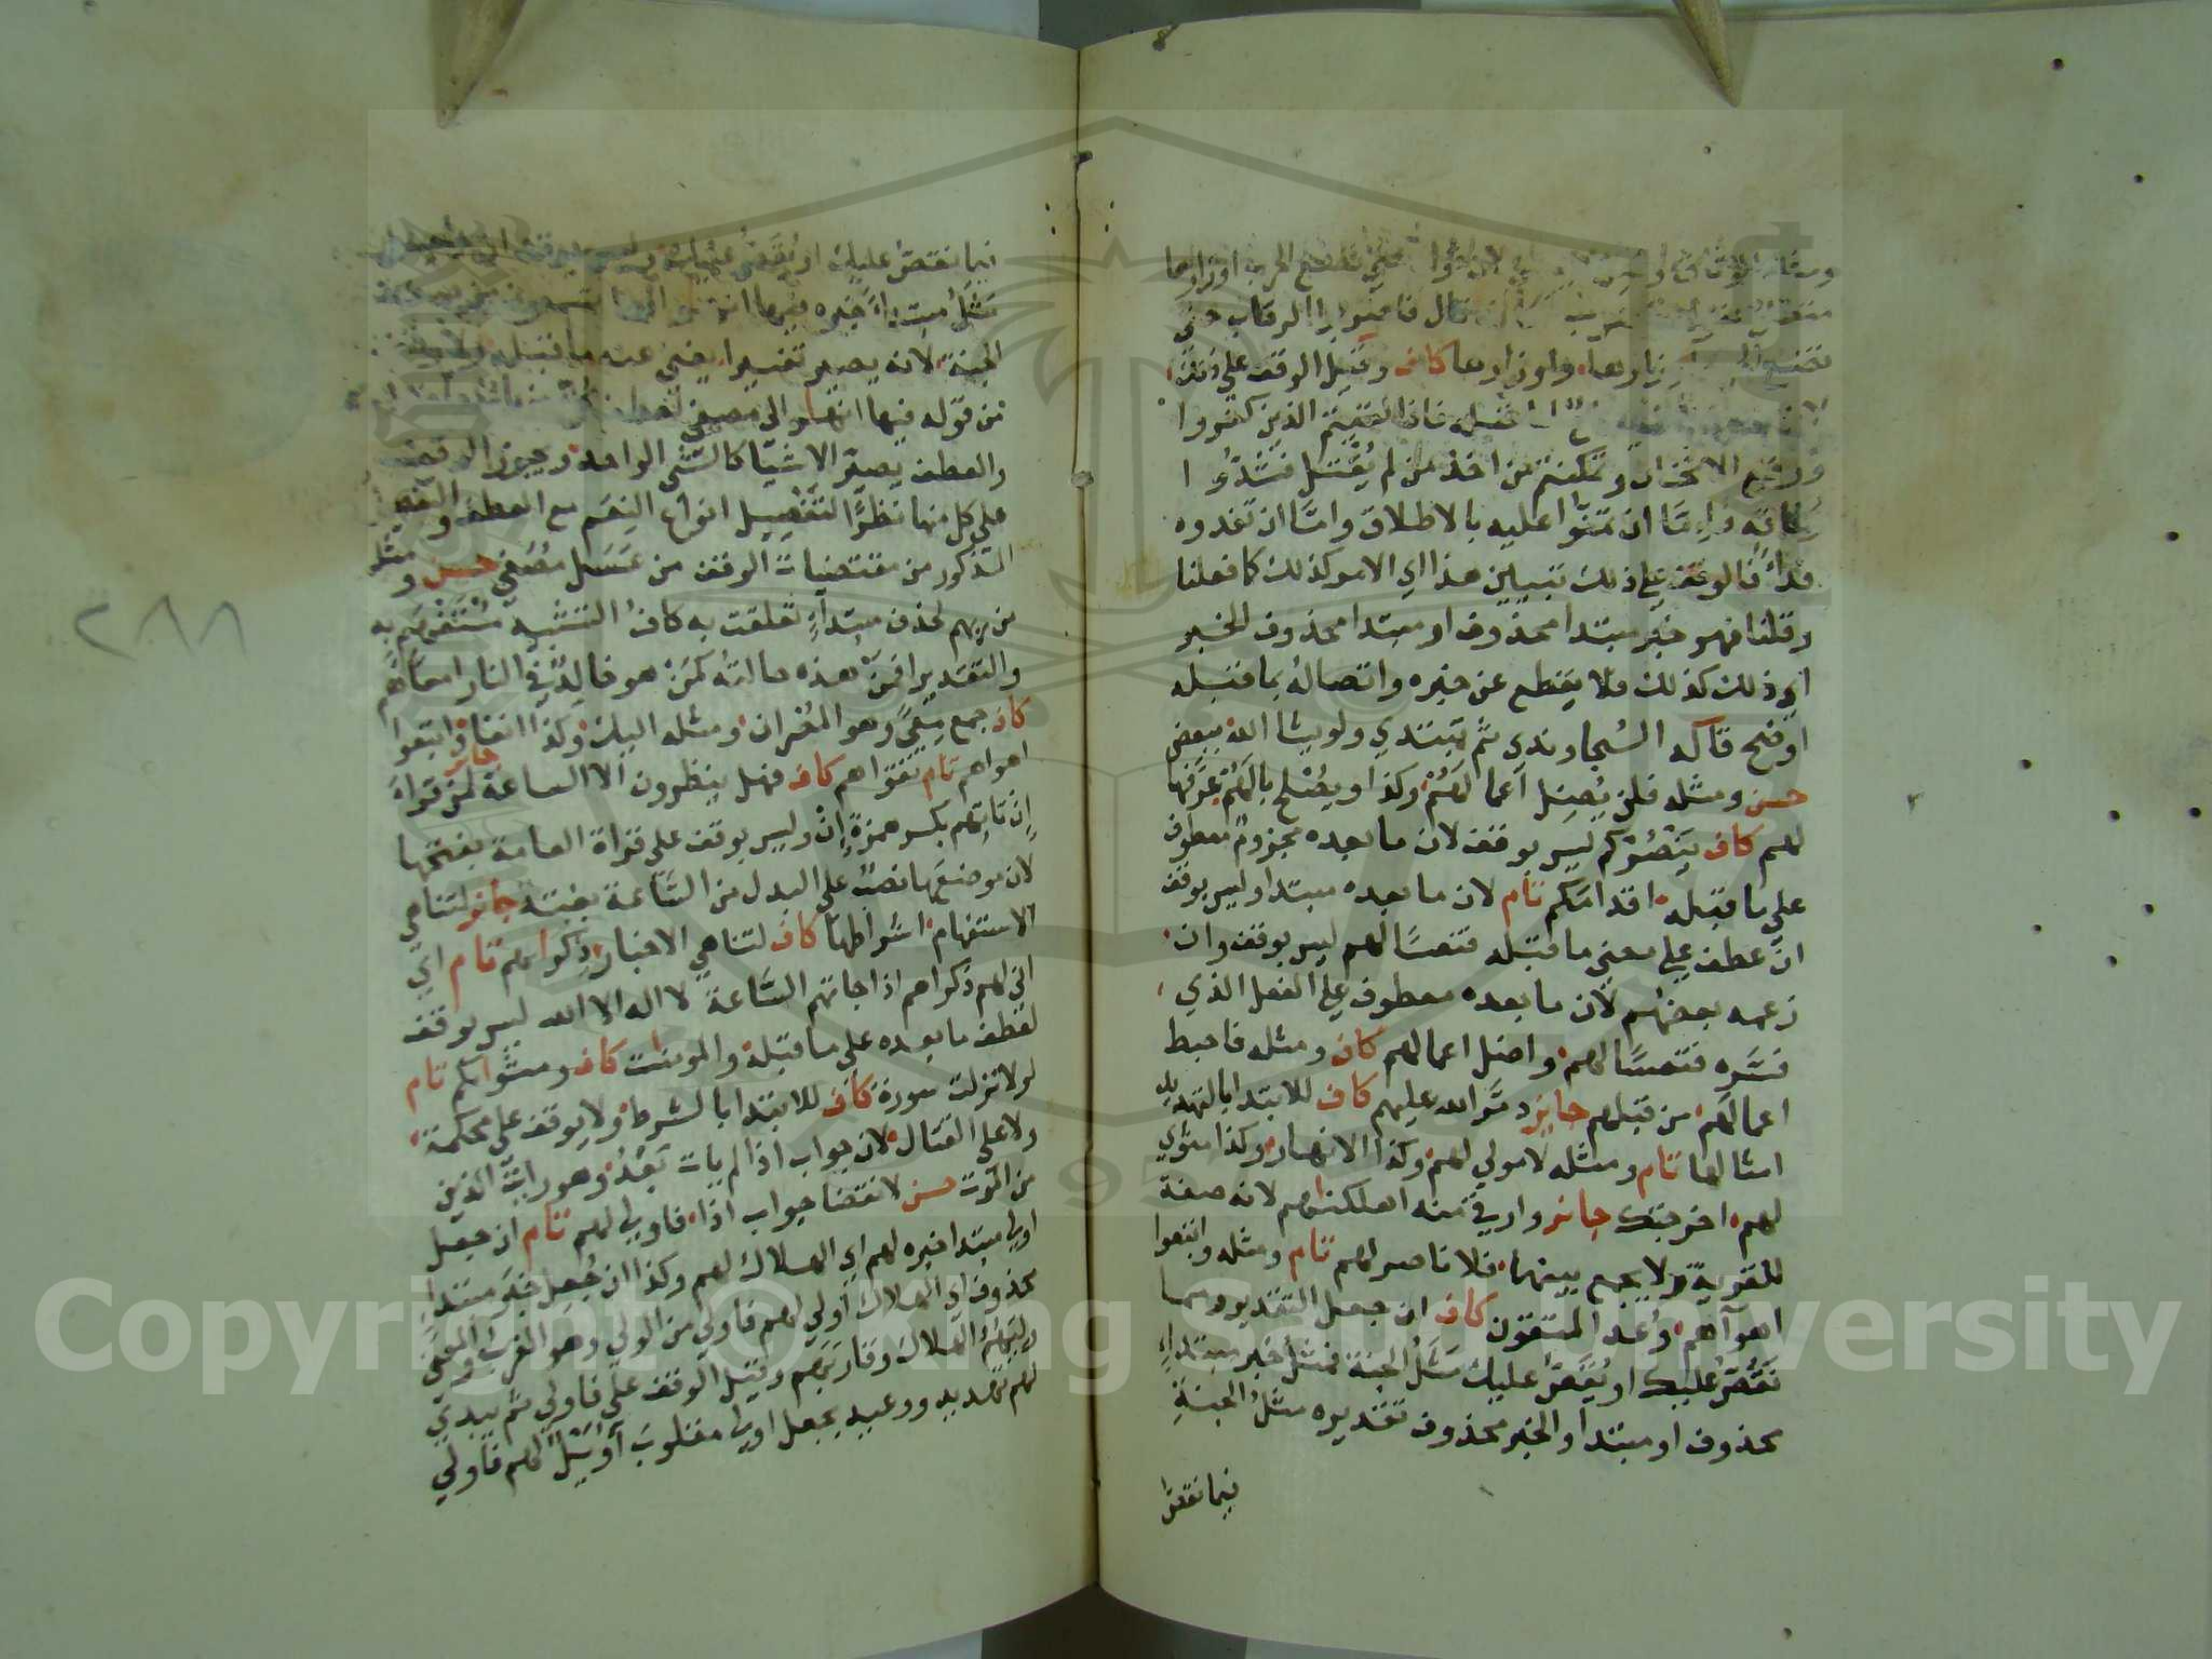 الوثاق حتى تضع الحرب اوزارها
قال فاضربوا الرقاب حتى
تضع اوزارها واوزارها كاف وقيل الوقف على ذلك
فاذا لقيتم الذين كفروا
ووقع الاثخان وتمكنتم من اخذ من لم يقتل فشدوا
وثاقه فاما ان تمنوا عليه بالاطلاق واما ان تفدوه
فداء فالوقف على ذلك تبيين هذا اي الامر كذلك كما فعلنا
وقلنا فهو خبر مبتدا محذوف او مبتدا محذوف الخبر
اي ذلك كذلك فلا يقطع عن خبره واتصاله بما قبله
اوضح قاله السجاوندي ثم تبتدي ولو يشا الله ببعض
حسن ومثله فلن يُضِل اعمالهم وكذا ويصلح بالهم عرفها
لهم كاف ينصركم ليس بوقف لان ما بعده مجزوم معطوف
على ما قبله اقدامكم تام لان ما بعده مبتدا وليس بوقف
ان عطف على معنى ما قبله فتعسا لهم ليس بوقف وان
زعمه بعضهم لان ما بعده معطوف على الفعل الذي
فسّره فتعسا لهم واضل اعمالهم كاف ومثله فاحبط
اعمالهم من قبلهم جايز دمّر الله عليهم كاف للابتدا بالتهديد
امثالها تام ومثله لا مولى لهم وكذا الانهار وكذا مثوى
لهم اخرجتك جائز وارقي منه اهلكناهم لانه صفة
للقرية ولا يجمع بينهما فلا ناصر لهم تام ومثله واتبعوا
اهوآهم وُعد المتقون كاف ان جعل التقدير ومما
نَقُصّ عليك او يُقَصّ عليك مَثَلُ الجنة فمثل خبر مبتداءٍ
محذوف او مبتدا والخبر محذوف تقديره مثل الجنةِ
فيما نقصّ
فيما نقصّ عليك او يُقَصّ عليك وليس بوقف ان جعل
مَثَل مبتداءً خبره فيها انهار
الجنة لانه يصير تفسيرا يغني عنه ما قبله
من قوله فيها انهار الى مصفى
والعطف يصير الاشيا كالشي الواحد ويجوز الوقف
على كل منها نظرًا لتفصيل انواع النِعَم مع العطف
المذكور من مقتضيات الوقف من عَسَل مُصَفى حسن ومثله
من ربهم لحذف مبتداءٍ تعلقت به كاف التشبيه مُسْتَفهم به
والتقدير افمن هذه حالته كمَن هو خالدٌ في النار امعاهم
كاف جمع مِعًى وهو المُصران ومثله اليك وكذا انفا واتبعوا
اهواهم تام تقواهم كاف فهل ينظرون الا الساعة جائز لمن قراءَ
اِنْ تاتِهم بكسر همزةِ اِنْ وليس بوقف على قراة العامة بفتحها
لان موضعها نصبٌ على البدل من السّاعة بغتة جائز لتناهي
الاستفهام اشراطها كاف لتناهي الاخبار ذكراهم تام اي
انى لهم ذكراهم اذا جاتهم السَّاعة لا اله الا الله ليس بوقف
لعطف ما بعده على ما قبله والمومنات كاف ومثواكم تام
لولا نزلت سورة كاف للابتدا بالشرط ولا يوقف على محكمة
ولا على القتال لان جواب اذا لم يات بَعْدُ وهو رايتَ الذين
من الموت حسن لانقضا جواب اذا فاولى لهم تام ان جعل
اولى مبتدا خبره لهم اي الهلاك لهم وكذا ان جُعِل خبَرَ مبتداءٍ
محذوف اي الهلاك اولى لهم فاولى من الولي وهو القرب والمعنى
وليَهُمُ الهلاك وقاربهم وقيل الوقف على فاولى ثم يبتدي
لهم تهديد ووعيد بجعل اولى مقلوب لهم فاولى
٢٨٨
Copyright © King Saud University